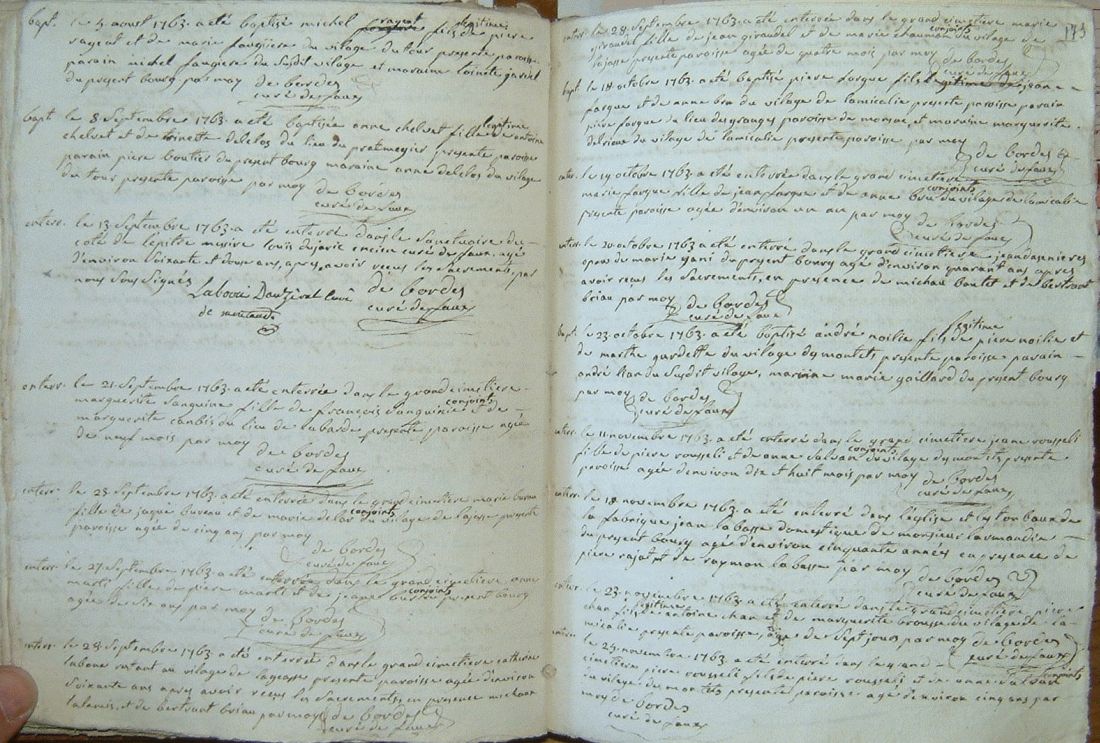 bapt. le 4 aoust 1763 a été baptisé michel ragent legitime fils de piere
ragent et de marie faugiere du vilage du tour presente paroisse
parain michel faugiere du susdit vilage et maraine toinete
du present bourg par moy de bordes
curé de faux
bapt le 8 Septembre 1763 a été baptisée anne chelvet fille legitime de antoine
chelvet et de toinette delclos du lieu du pratmegier presente paroisse
parain piere boutier du present bourg maraine anne delclos du vilage
du tour presente paroisse par moy de bordes
curé de faux
enterr. le 13 Septembre 1763 a été enterré dans le Sanctuaire du
coté de lepitre messire louis dujaric encien curé de faux, agé
d'environ Soixante et douse ans, apres avoir recus les Sacremens, par
nous Sous Signés
de bordes
curé de faux
enterr. le 21 Septembre 1763 a été enterrée dans le grand cimetiere
marguerite Sanguine fille de francois Sanguinie et de conjoints
marguerite canbis du lieu de labarde presente paroisse agée
de neuf mois par moy
de bordes
curé de faux
enterr. le 23 Septembre 1763 a été enterrée dans le grand cimetiere marie bureau
fille de jaque bureau et de marie delar conjoints du vilage de lajasse presente
paroisse agée de cinq ans par moy
de bordes
curé de faux
enterr. le 27 Septembre 1763 a été enterrée dans le grand cimetiere anne
fille de piere et de jeanne conjoints present bourg
agée de six ans par moy
de bordes
curé de faux
enterr. le 28 Septembre 1763 a été enterrée dans le grand cimetiere catherine
labonne au vilage de presente paroisse agée denviron
Soixante ans apres avoir recus les Sacremens, en presence michau
et de bertrant briau par moy de bordes
curé de faux
173
enterr. le 28 Septembre 1763 a été enterrée dans le grand cimetiere marie
giraudel fille de jean giraudel et de marie chaumon conjoints du vilage de
lajasse presente paroisse agée de quatre mois par moy de bordes
curé de faux
bapt. le 18 octobre 1763 a été baptisé piere farque fils legitime de jean
farque et de anne bru du vilage de lamicalie presente paroisse parain
piere farque du lieu des granges paroisse de monsac et maraine marguerite
delrieux du vilage de lamicalie presente paroisse par moy
de bordes
curé de faux
enterr. le 19 octobre 1763 a été enterrée dans le grand cimetiere
marie farque fille de jean farque et de anne bru conjoints du vilage de lamicalie
presente paroisse agée denviron un an par moy
de bordes
curé de faux
enterr. le 20 octobre 1763 a été enterré dans le grand cimetiere jean
epoux de marie gani du present bourg agé denviron quarant ans apres
avoir recus les Sacrements, en presence de michau boutet et de bertrant
briau par moy de bordes
curé de faux
bapt. le 23 octobre 1763 a été baptisé andré noilie fils legitime de piere noilie et
de marthe gardette du vilage dy montets presente paroisse parain
andré du susdit vilage, maraine marie gaillard du present bourg
par moy de bordes
curé de faux
enterr. le 11 novembre 1763 a été enterrée dans le grand cimetiere jeane rousseli
fille de piere rousseli et de anne Salvan conjoints du vilage dy montets presente
paroisse agée denviron dix et huit mois par moy de bordes
curé de faux
enterr. le 18 novembre 1763 a été enterré dans l'église et au tonbaux de
la fabrique jean labasse domestique de monsieur larmandie
du present bourg agé denviron cinquante années en presence de
piere rajat et de raymon labasse par moy
de bordes
curé de faux
enterr. le 23 novembre 1763 a été enterré dans le grand cimetiere piere
chan fils legitime antoine chan et de marguerite brousse du vilage de la
micalie presente paroisse agé de Sept jours par moy de bordes
curé de faux
enterr. le 29 novembre 1763 a été enterré dans le grand
cimetiere piere rousseli fils de piere rousseli et de anne Salvan conjoints
du vilage du montets presente paroisse agé denviron cinq ans par
moy de bordes
curé de faux